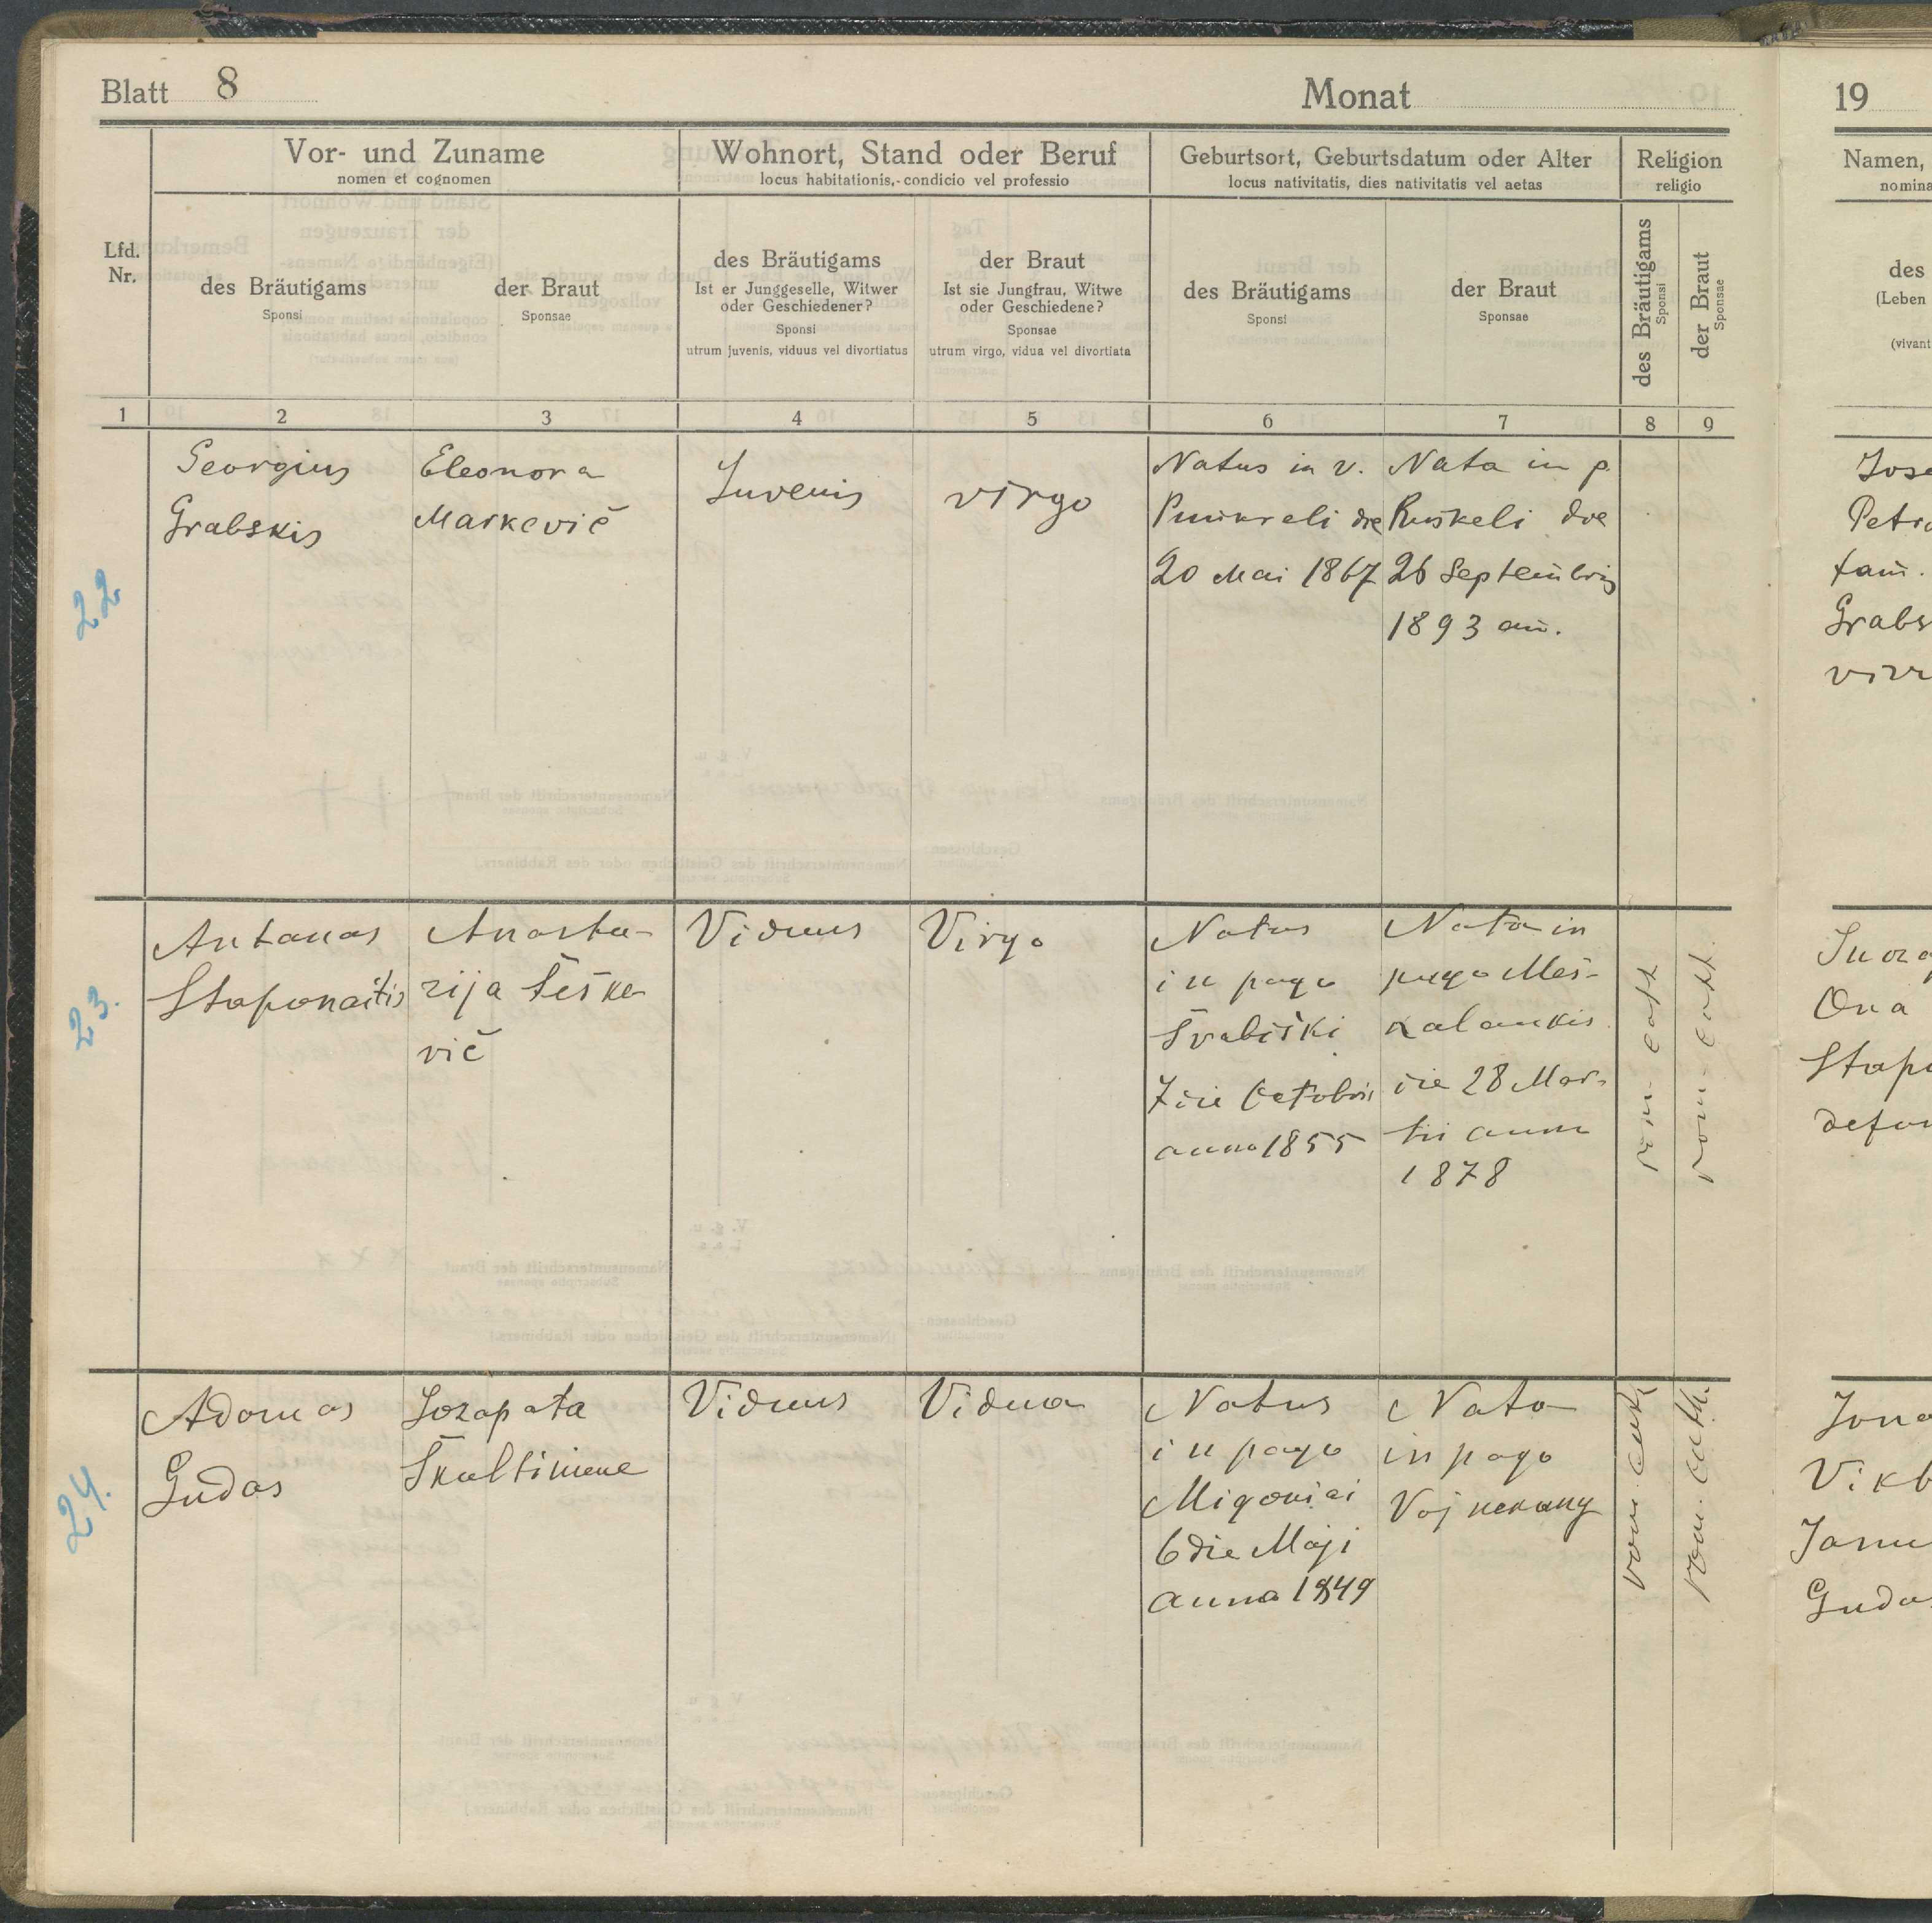 Blatt 8
Monat
19
Vor- und Zuname
nomen et cognomen
Wohnort, Stand oder Beruf
locus habitationis, condicio vel professio
Geburtsort, Geburtsdatum oder Alter
locus nativitatis, dies nativitatis vel aetas
Religion
religio
Namen,
nomina
Lfd.
Nr.
des Bräutigams
Sponsi
der Braut
Sponsae
des Bräutigams
Ist er Junggeselle, Witwer
oder Geschiedener?
Sponsi
utrum juvenis, viduus vel divortiatus
der Braut
Ist sie Jungfrau, Witwe
oder Geschiedene?
Sponsae
utrum virgo, vidua vel divortiata
des Bräutigams
Sponsi
der Braut
Sponsae
des Bräutigams
Sponsi
der Braut
Sponsae
des
(Leben
(vivant
1 2 3 4 5 6 7 8 9
22
Georgius
Grabskis
Eleonora
Markevič
Juvenis
virgo
Natus in v.
die
20 Mai 1867
Nata in p.
Ruskeli die
26 Septembris
1893 an.
Jose
Petro
fam.
Grabs
vivi
23.
Antanas
Staponaitis
Anasta-
zija Češke
vič
Viduus
Virgo
Natus
in pago
Švabiški
7 die Octobris
anno 1855
Nata in
pago Meš-
kalaukis
die 28 Mar-
tii anno
1878
rom. cath.
rom. cath.
Juoza
Ona
Stapo
defun
24.
Adomas
Gudas
Jozapata
Škultiniene
Viduus
Vidua
Natus
in pago
Migoniai
6 die Maji
anno 1849
Nata
in pago
rom. cath.
rom. cath.
Jona
Vikt
Janu
Gudas